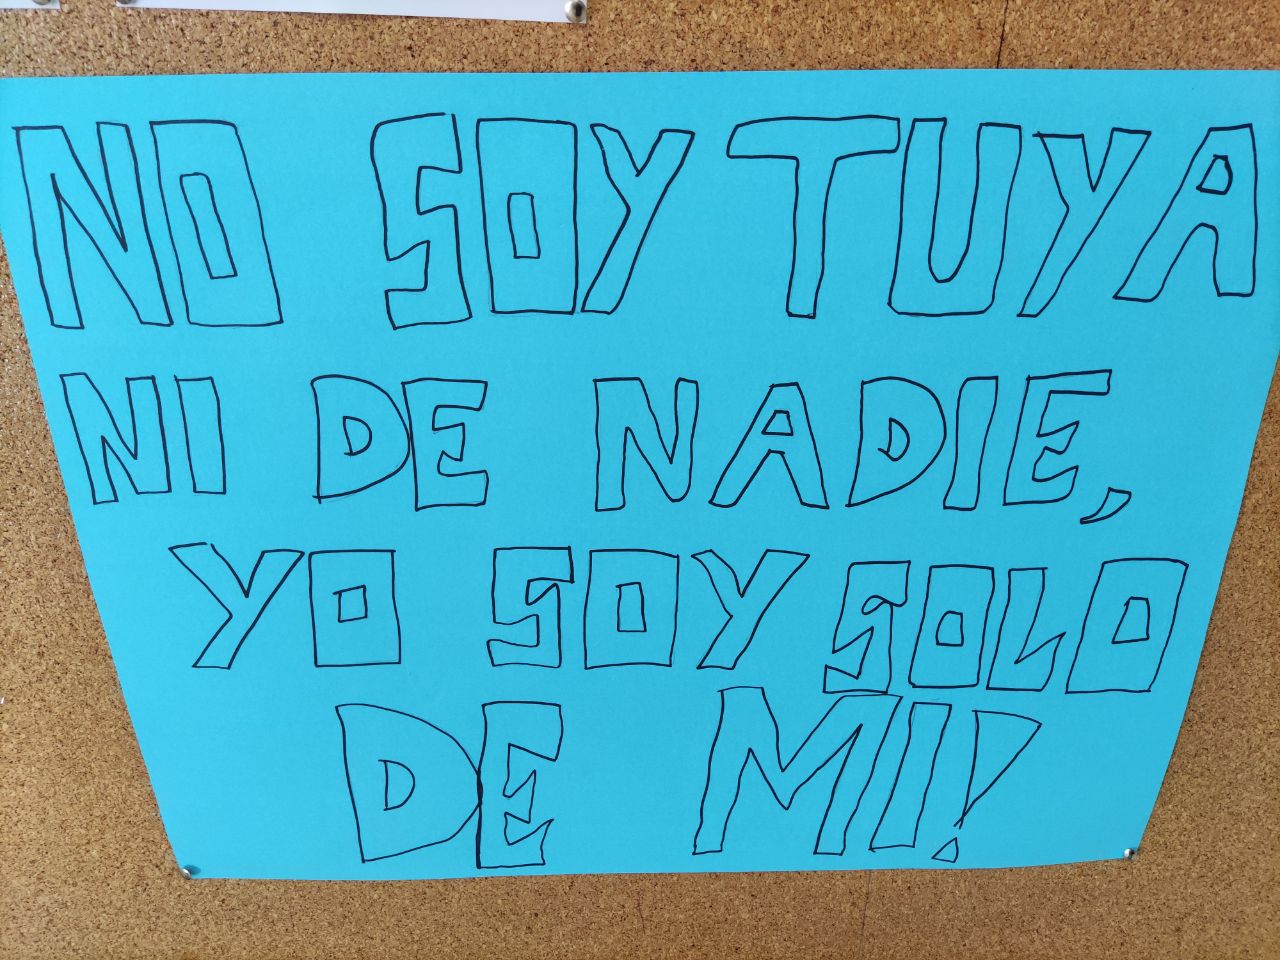 NO SOY TUYA
NI DE NADIE,
YO SOY SOLO
DE MI!